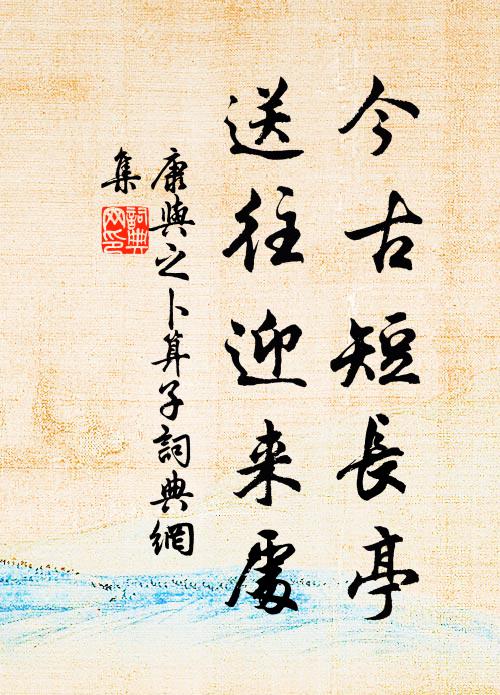 今古短長亭
送往迎来處
康與之卜算子詞典網
集
詞典
网印